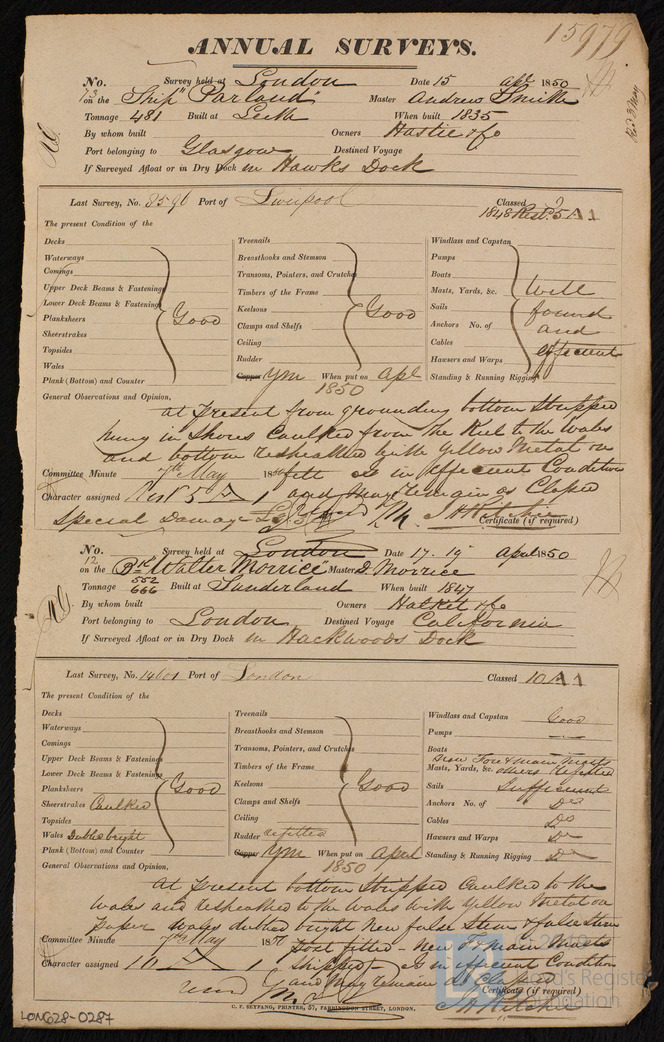 15979
ANNUAL SURVEYS.
No. Survey held at London Date 15 Apl 1850
73 on the Ship "Parland" Master Andrew Smith
Tonnage 481 Built at Leith When built 1835
By whom built Owners Hastie & Co
Port belonging to Glasgow Destined Voyage
If Surveyed Afloat or in Dry Dock in Hawks Dock
Last Survey, No. 8596 Port of Liverpool Classed
1848 Rest. 5 A 1
The present Condition of the
Decks Treenails Windlass and Capstan
Waterways Breasthooks and Stemson Pumps
Comings Transoms, Pointers, and Crutches Boats
Upper Deck Beams & Fastenings Timbers of the Frame Masts, Yards, &c. Well
Lower Deck Beams & Fastenings Keelsons Sails found
Planksheers Good Clamps and Shelfs Good Anchors No. of and
Sheerstrakes Ceiling Cables efficient
Topsides Rudder Hawsers and Warps
Wales Copper YM When put on Apl Standing & Running Rigging
Plank (Bottom) and Counter 1850
General Observations and Opinion,
At present from grounding bottom stripped
hung in Shores Caulked from the Keel to the Wales
and bottom resheathed with Yellow Metal on
Committee Minute 7th May 1850 felt is in efficient Condition
Character assigned Rest 5 A 1 and may remain as Classed
Special Damage J H Ritchie
Certificate (if required)
No. Survey held at London Date 17. 19 April 1850
12 on the Bk "Walter Morrice" Master D. Morrice
Tonnage 552 666 Built at Sunderland When built 1847
By whom built Owners Halket & Co
Port belonging to London Destined Voyage California
If Surveyed Afloat or in Dry Dock in Hackwoods Dock
Last Survey, No. 14601 Port of London Classed 10 A 1
The present Condition of the
Decks Treenails Windlass and Capstan Good
Waterways Breasthooks and Stemson Pumps
Comings Transoms, Pointers, and Crutches Boats
Upper Deck Beams & Fastenings Timbers of the Frame New Fore & Main Masts
Masts, Yards, &c. others refitted
Lower Deck Beams & Fastenings Keelsons Sails Sufficient
Planksheers Good Clamps and Shelfs Good Anchors No. of Do
Sheerstrakes Caulked Ceiling Cables Do
Topsides Rudder refitted Hawsers and Warps Do
Wales Dubbed bright Copper YM When put on April Standing & Running Rigging Do
Plank (Bottom) and Counter 1850
General Observations and Opinion,
At present bottom stripped Caulked to the
Wales and resheathed to the Wales with Yellow Metal on
paper wales dubbed bright New false Stem & false Stern
Committee Minute 7th May 1850 post fitted - New F & main Masts
Character assigned 10 A 1 shipped - Is in efficient Condition
and may remain as Classed
Certificate (if required)
J H Ritchie
C. F. SEYFANG, PRINTER, 57, FARRINGDON STREET, LONDON.
LON628-0287
Lloyd's Register
Foundation